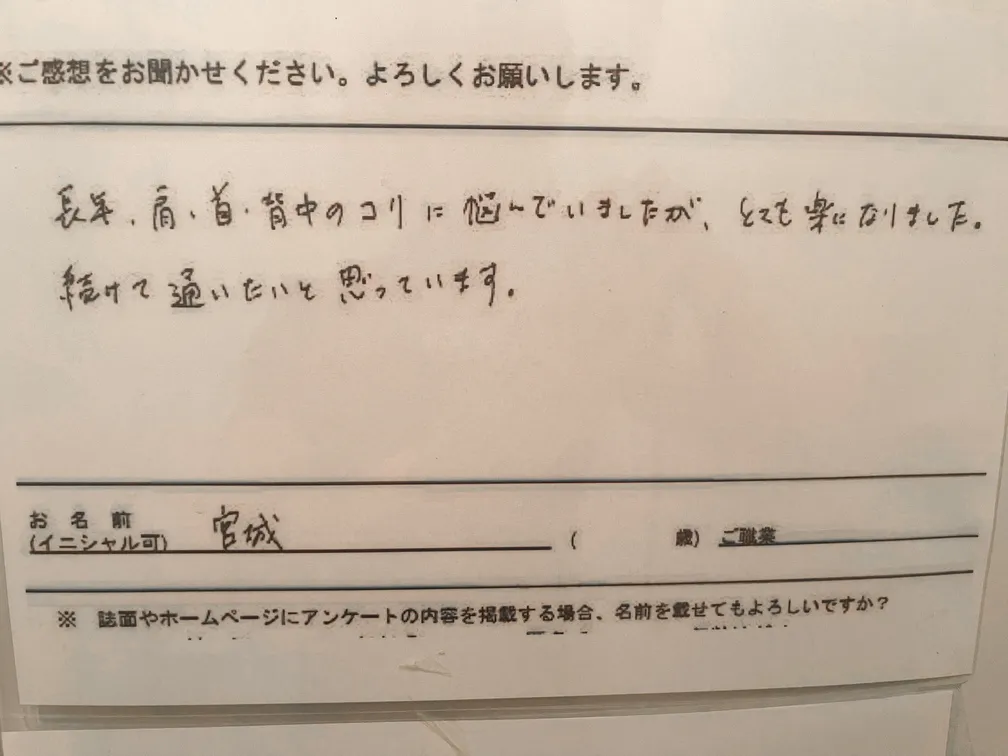 ※ご感想をお聞かせください。よろしくお願いします。
長年、肩・首・背中のコリに悩んでいましたが、とても楽になりました。
続けて通いたいと思っています。
お名前
(イニシャル可) 宮城 ( 歳) ご職業
※ 誌面やホームページにアンケートの内容を掲載する場合、名前を載せてもよろしいですか？